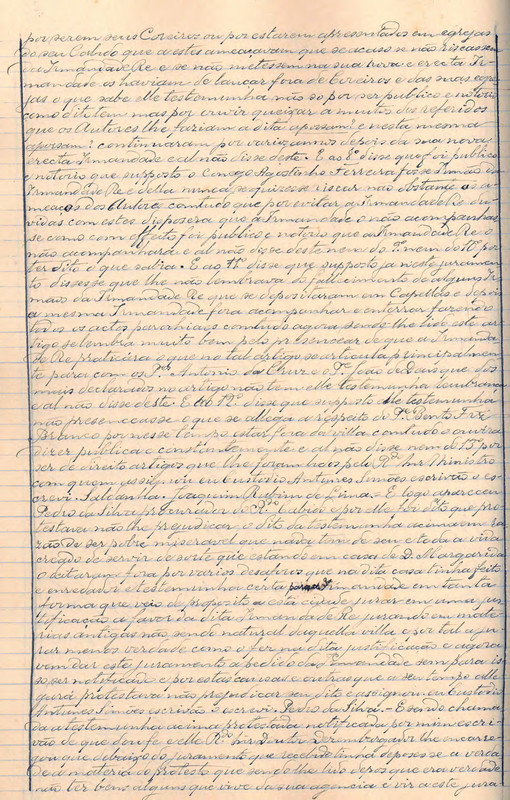 por serem seus Coreiros ou por estarem apresentados em egrejas
do seu Cabido que a estes ameaçavam que se acaso se não riscassem
da Irmandade Re e se não metessem na sua nova e erecta Ir-
mandade os haviam de lançar fora de Coreiros e das suas egre-
jas o que sabe elle testemunha não só por ser publico e notorio
como dito tem mas por ouvir queixar a muitos dos referidos
que os Autores lhe faziam a dita e nesta mesma
continuaram por varios annos depois da sua nova
erecta Irmandade e al não disse deste. E ao 8º disse que foi publico
e notorio que supposto o Conego Agostinho Ferreira fosse Irmão da
Irmandade Re e della nunca se quizesse riscar não obstante as a-
meaças dos Autores comtudo que por evitar a Irmandade Re du-
vidas com estes dispozera que a Irmandade o não acompanhas-
se como com effeito foi publico e notorio que a Irmandade Re o
não acompanhara e al não disse deste nem do 9º nem do 10º por
ter dito o que sabia. E ao 11º disse que supposto ja neste juramen-
to dissesse que lhe não lembrava do fallecimento de alguns Ir-
mãos da Irmandade Re que se depositaram em Capellas e depois
a mesma Irmandade fora acompanhar e enterrar fazendo
todos os actos parochiaes comtudo agora sendo lhe lido este ar-
tigo se lembra muito bem pelo presencear de que a Irmanda-
de Re praticára o que no tal artigo se articula principalmen-
te para com os Pes Antonio da Cruz e o Pe João de Deus que dos
mais declarados no artigo não tem elle testemunha lembrança
e al não disse deste. E ao 12º disse que supposto elle testemunha
não presenceasse o que se allega a respeito do Pe Bento José
Branco por nesse tempo estar fora da villa comtudo o ouvira
dizer publica e constantemente e al não disse nem do 13º por
ser de direito artigos que lhe foram lidos pelo Rdo Snr Ministro
com quem assignou eu Custodio Antunes Simões escrivão o es-
crevi. Saldanha. Joaquim Rubim de Lima. - E logo appareceu
Pedro da Silva procurador do Rdo Cabido e por elle foi dito que pro-
testava não lhe prejudicar o dito da testemunha acima em ra-
zão de ser pobre miseravel que nada tem de seu e toda a vida
creado de servir de sorte que estando em casa de D. Margarida
o deitara fora por varios desaforos que na dita casa tinha feito
e enredador e testemunha certa Irmandade em tanta
forma que veio de proposito a esta cidade jurar em uma jus-
tificação a favor da dita Irmandade Re jurando em mate-
rias antigas não sendo natural daquella villa e por tal a ju-
rar menos verdade como o fez na dita justificação e agora
vem dar este juramento a pedido da Irmandade sem para is-
so ser notificado e por estas causas e outras que a seu tempo alle-
gará protestava não prejudicar seu dito e assignou eu Custodio
Antunes Simões escrivão o escrevi. Pedro da Silva. - E sendo chama-
da a testemunha acima protestada notificada por mim escri-
vão de que dou fé e elle Rdo Snr Doutor Dezembargador lhe encarre-
gou que debaixo do juramento que recebido tinha depozesse a verda-
de da materia do protesto que sendo lhe lido depoz que era verdade
não ter bens alguns que vive da sua agencia e vir a este jura-